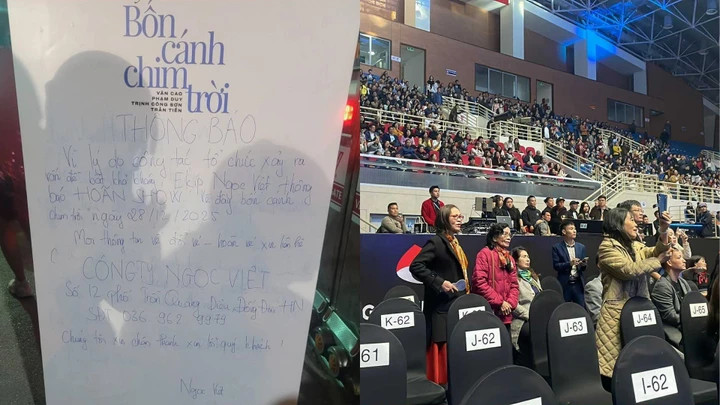 Bốn
cánh
chim
trời
VĂN CAO
PHẠM DUY
TRỊNH CÔNG SƠN
TRẦN TIẾN
THÔNG BÁO
Vì lý do công tác tổ chức xảy ra
vấn đề bất khả kháng Ekip Ngọc Việt thông
báo HOÃN SHOW
chim trời ngày 28/12/2025
Mọi thông tin về đổi vé - hoàn vé xin liên hệ
CÔNG TY NGỌC VIỆT
Số 12 phố
Sđt: 036 962 9979
Chúng tôi xin chân thành xin lỗi quý khách!
Ngọc Việt
K-62
J-62
J-63
J-64
J-65
61
I-62